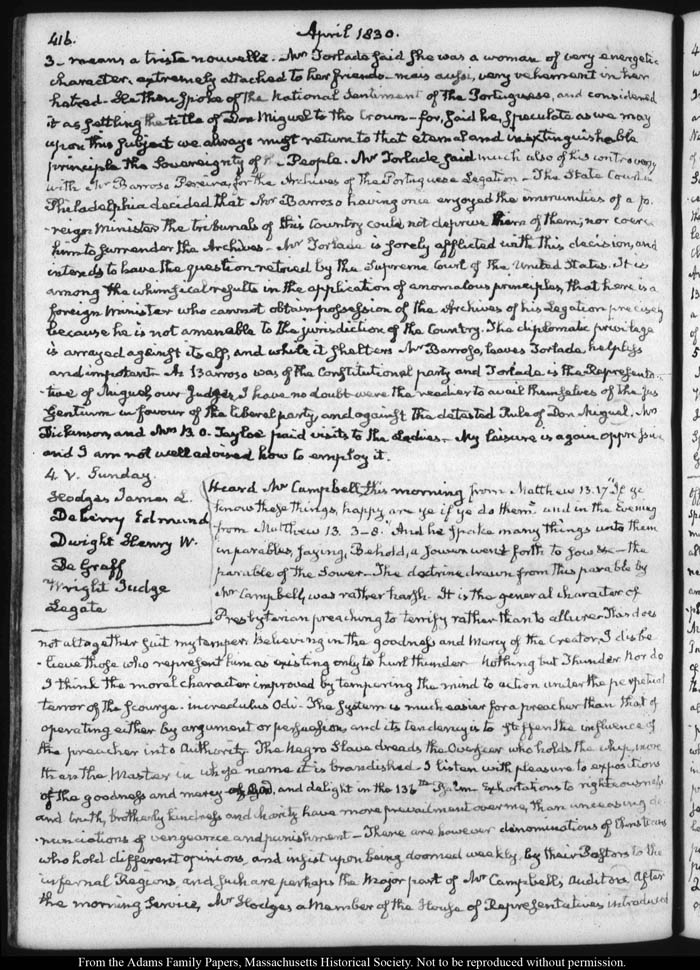 416.
April 1830.
3_ means a triste nouvelle. Mr Torlade said she was a woman of very energetic
character, extremely attached to her friends_ mais aussi, very vehement in her
hatred_ He then spoke of the National Sentiment of the Portuguese, and considered
it as settling the title of Don Miguel to the Crown_ for, said he, speculate as we may
upon this subject we always must return to that eternal and inextinguishable
principle the Sovereignty of the People. Mr Torlade said much also of his controversy
with Mr Barrozo Pereira, for the Archives of the Portuguese Legation_ The State Court in
Philadelphia decided that Mr Barrozo having once enjoyed the immunities of a fo
-reign Minister the tribunals of this Country could not deprive him of them; nor coerce
him to surrender the Archives_ Mr Torlade is sorely afflicted with this decision, and
intends to have the question retried by the Supreme Court of the United States. It is
among the whimsical results in the application of anomalous principles, that here is a
foreign Minister who cannot obtain possession of the Archives of his Legation precisely
because he is not amenable to the jurisdiction of the Country. The diplomatic privilege
is arrayed against itself, and while it shelters Mr Barrozo, leaves Torlade helpless
and impotent_ As Barrozo was of the Constitutional party and Torlade is the Representa
-tive of Miguel, our Judges, I have no doubt were the readier to avail themselves of the jus
Gentium in favour of the liberal party, and against the detested Rule of Don Miguel. Mrs
Dickinson, and Mrs B. O. Tayloe paid visits to the Ladies_ My leisure is again oppressive
and I am not well advised how to employ it.
4. V. Sunday.
Hodges James L.
Deberry Edmund
Dwight Henry W.
De Graff
Wright Judge
Legate
Heard Mr Campbell, this morning from Matthew 13.17 "If ye
know these things, happy are ye if ye do them" and in the Evening
from Matthew 13. 3-8. "And he spake many things unto them
in parables, saying, Behold, a sower went forth to sow &c_ the
parable of the Sower_ The doctrine drawn from this parable by
Mr Campbell, was rather harsh. It is the general character of
Presbyterian preaching to terrify rather than to allure_ This does
not altogether suit my temper. Believing in the goodness and Mercy of the Creator, I disbe
-lieve those who represent him as existing only to hurl thunder_ Nothing but Thunder. Nor do
I think the moral character improved by tempering the mind to action under the perpetual
terror of the scourge. incredulus Odi_ The system is much easier for a preacher than that of
operating either by argument or persuasion, and its tendency is to stiffen the influence of
the preacher into Authority. The Negro Slave dreads the Overseer who holds the whip, more
than the Master in whose name it is brandished_ I listen with pleasure to expositions
of the goodness and mercy of God, and delight in the 136th Psalm_ Exhortations to righteousness
and truth, brotherly kindness and charity have more prevailment over me, than unceasing de
-nunciations of vengeance and punishment_ There are however denominations of Christians
who hold different opinions, and insist upon being doomed weekly, by their Pastors to the
infernal Regions, and such are perhaps the major part of Mr Campbell's auditors. After
the morning service, Mr Hodges a Member of the House of Representatives introduced
From the Adams Family Papers, Massachusetts Historical Society. Not to be reproduced without permission.